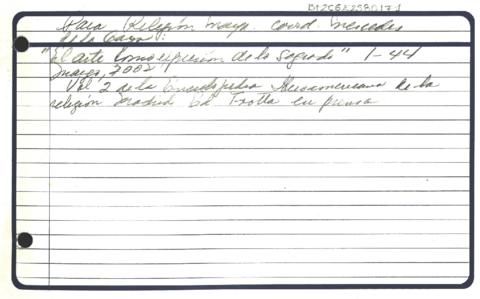 Para Religión maya. Coord. Mercedes
de la Garza:
"El arte como expresión de lo sagrado" 1-44
marzo, 2002
Vol 2 de la Enciclopedia Iberoamericana de la
religión Madrid Ed Trotta en prensa